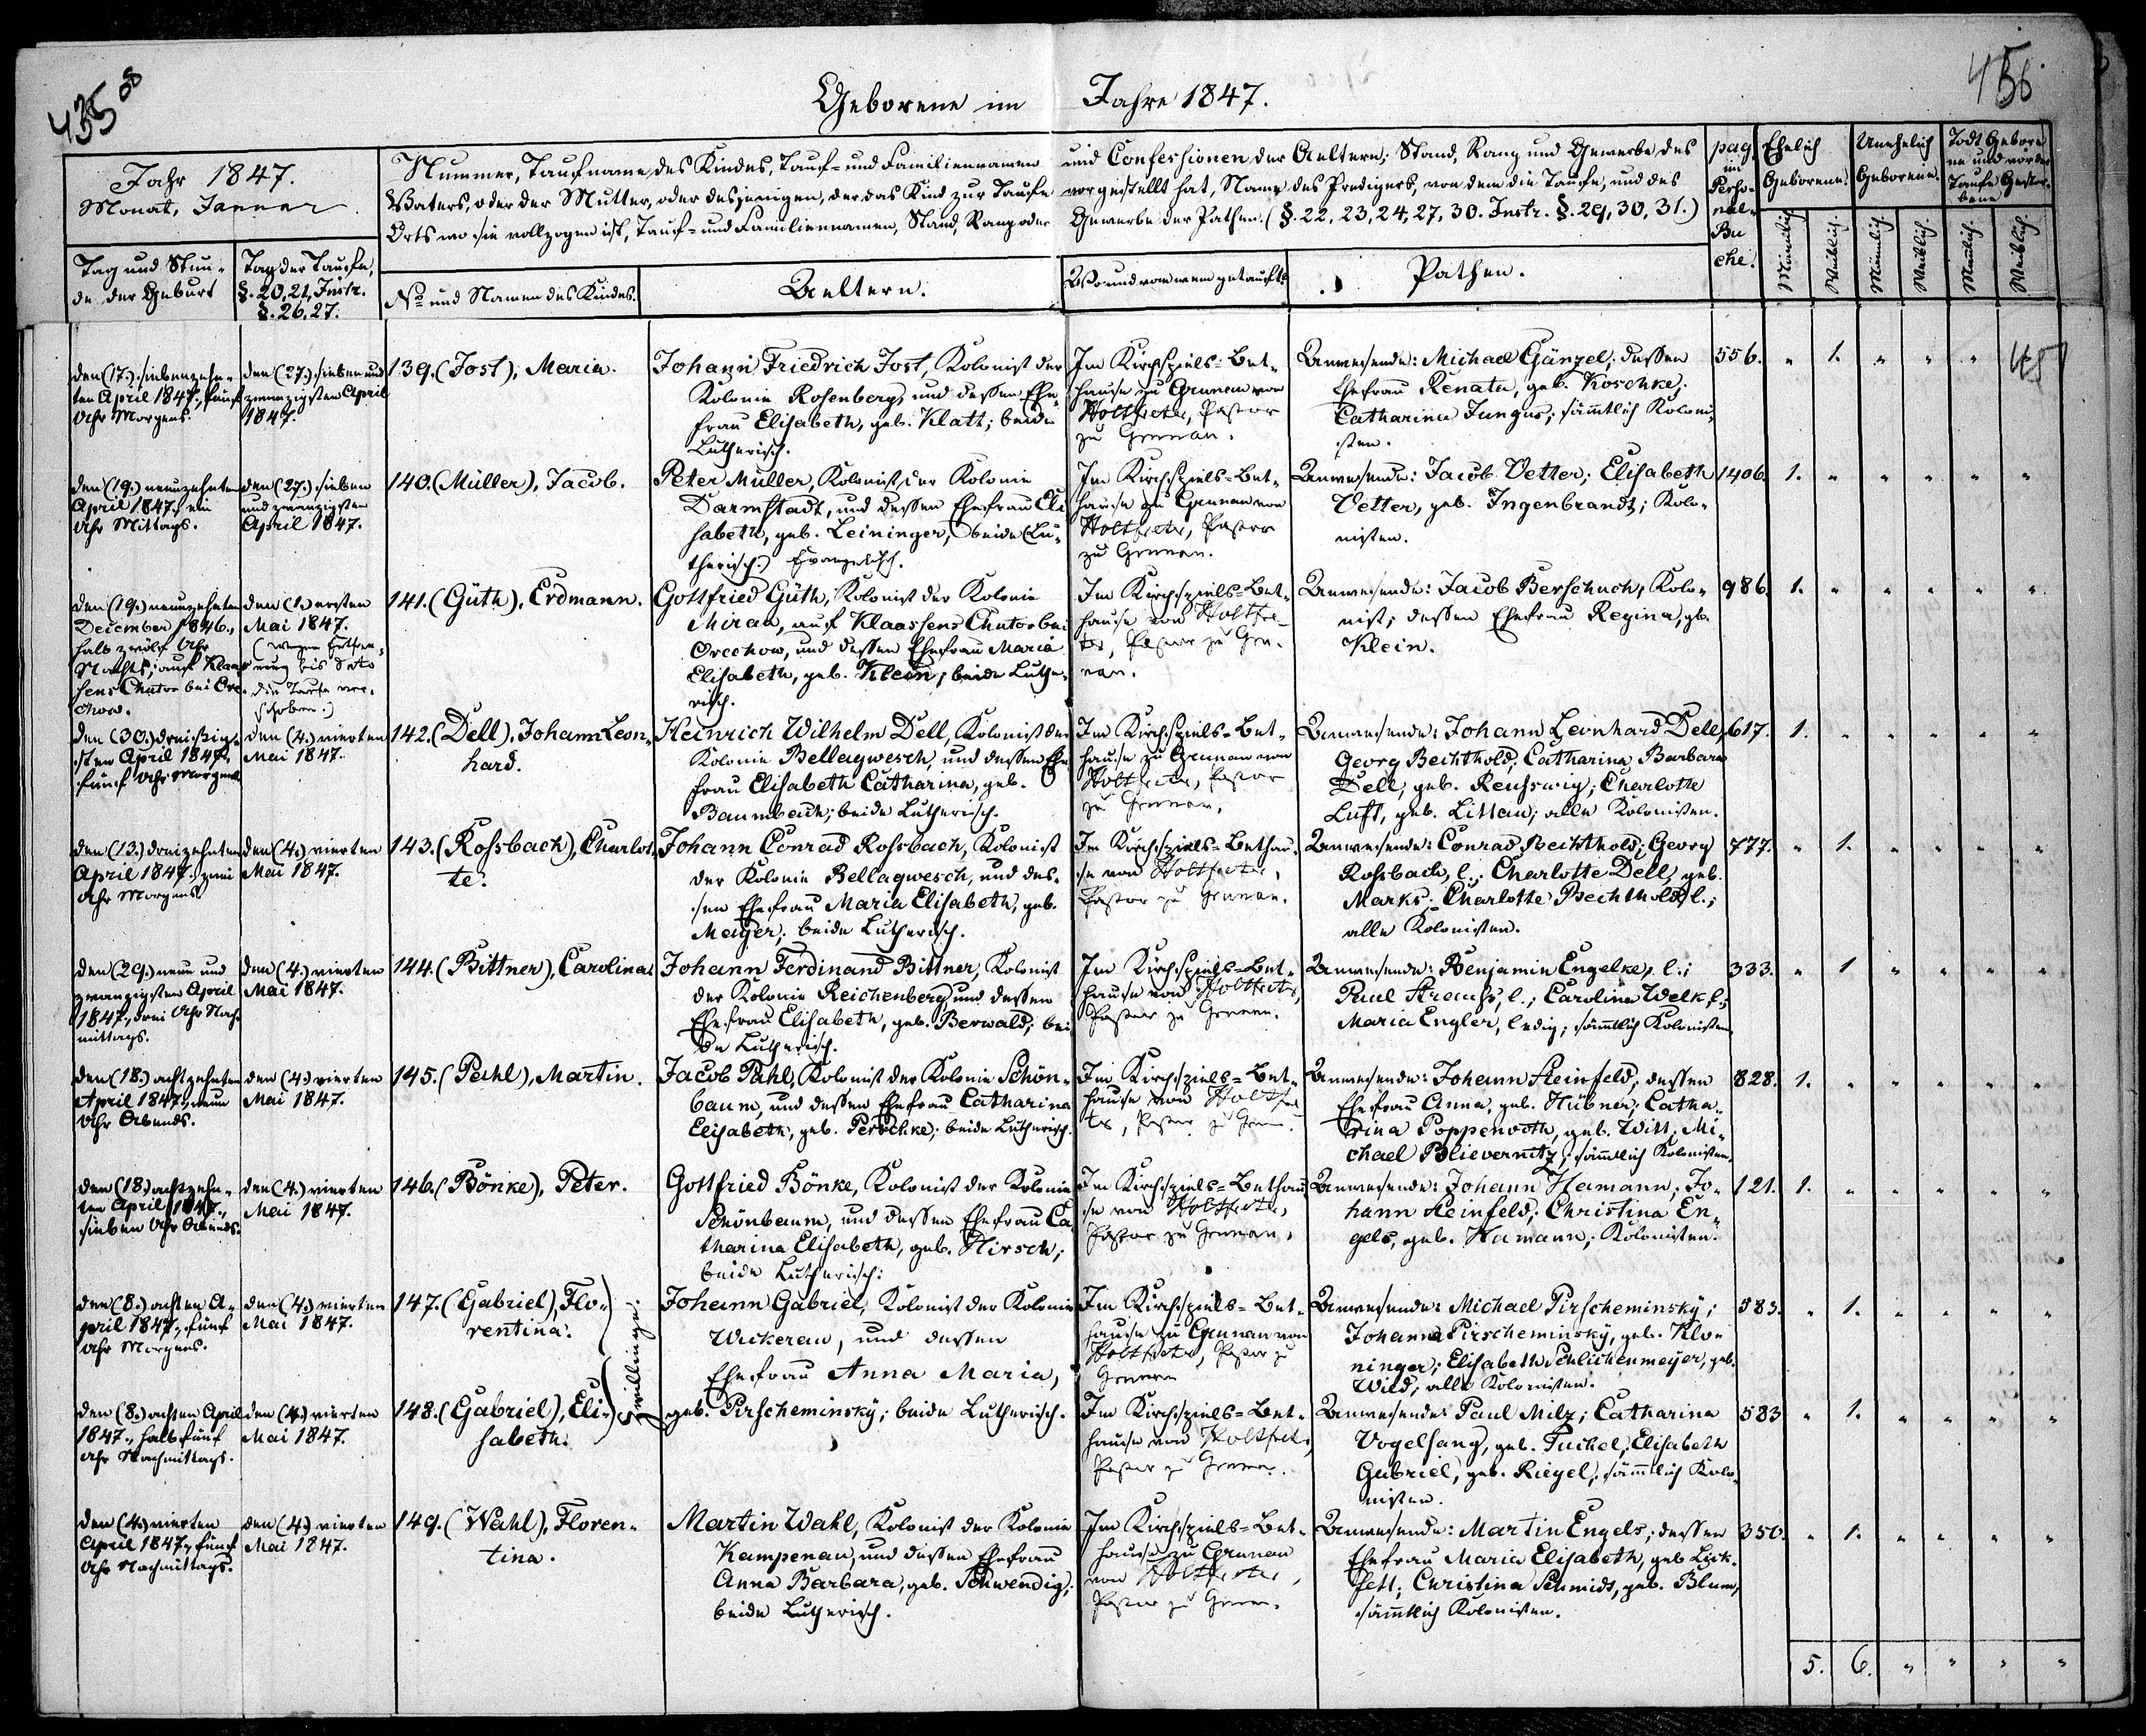 43508
456.
Geborene im Jahre 1847.
Jahr 1847.
Monat, Januar
Tag und Stun-
de der Geburt
Tag der Taufe,
§. 20, 21, Instr.
§. 26, 27.
Nummer, Taufname des Kindes, Tauf- und Familiennamen und Confessionen der Aeltern; Stand, Rang und Gewerbe des
Vaters, oder der Mutter, oder desjenigen, der das Kind zur Taufe vorgestellt hat, Name des Predigers, von dem die Taufe, und des
Orts wo sie vollzogen ist, Tauf- und Familiennamen, Stand, Rang oder Gewerbe der Pathen. (§. 22, 23, 24, 27, 30. Instr. §. 29, 30, 31.)
No und Namen des Kindes.
Aeltern.
Wo und von wem getauft.
Pathen.
pag.
im
Perso-
nal-
Bu
che.
Ehelich
Geborene.
Unehelich
Geborene.
Todt Gebore
ne und vor der
Taufe Gestor-
bene
Männlich.
Weiblich.
Männlich.
Weiblich.
Männlich.
Weiblich.
den (17.) siebenzehn-
ten April 1847., fünf
Uhr Morgens.
den (27.) sieben und
zwanzigsten April
1847.
139. (Jost), Maria.
Johann Friedrich Jost, Kolonist der
Kolonie Rosenberg, und dessen Ehe-
frau Elisabeth, geb. Klatt; beide
Lutherisch.
Im Kirchspiels-Bet-
hause zu Grunau von
Holtfreter, Pastor
zu Grunau.
Anwesende: Michael Günzel; dessen
Ehefrau Renata, geb. Koschke;
Catharina Jungus; sämmtlich Koloni-
sten.
556. " 1. " " "
45
den (19.) neunzehnten
April 1847., ein
Uhr Mittags.
den (27.) sieben
und zwanzigsten
April 1847.
140. (Müller), Jacob.
Peter Müller, Kolonist der Kolonie
Darmstadt, und dessen Ehefrau Eli
sabeth, geb. Leininger, beide (Lu-
therisch.) Evangelisch.
Im Kirchspiels-Bet-
hause zu Grunau von
Holtfreter, Pastor
zu Grunau.
Anwesende: Jacob Vetter; Elisabeth
Vetter, geb. Ingenbrandt; Kolo-
nisten.
1406. 1. " " " " "
den (19.) neunzehnten
December 1846.,
halb zwölf Uhr
Nachts; auf Klaas
sens Chutor bei Ore-
chow.
den (1.) ersten
Mai 1847.
(wegen Entfer-
nung bis dato
die Taufe ver-
schoben.)
141. (Güth), Erdmann.
Gottfried Güth, Kolonist der Kolonie
Mirau, auf Klaassens Chutor bei
Orechow, und dessen Ehefrau Maria
Elisabeth, geb. Klein; beide Luthe-
risch.
Im Kirchspiels-Bet-
hause von Holtfre-
ter, Pastor zu Gru-
nau.
Anwesende: Jacob Berschuch, Kolo-
nist; dessen Ehefrau Regina, gb.
Klein.
986. 1. " " " " "
den (30.) dreissig-
sten April 1847.,
fünf Uhr Morgens.
den (4.) vierten
Mai 1847.
142. (Dell), Johann Leon-
hard.
Heinrich Wilhelm Dell, Kolonist der
Kolonie Bellagwesch, und dessen Ehe
frau Elisabeth Catharina, geb.
Baumbach; beide Lutherisch.
Im Kirchspiels-Bet-
hause zu Grunau von
Holtfreter, Pastor
zu Grunau.
Anwesende: Johann Leonhard Dell,
Georg Bechthold; Catharina Barbara
Dell, geb. Reuhswig; Charlotte
Luft, geb. Littau; alle Kolonisten.
617. 1. " " " " "
den (13.) dreizehnten
April 1847., zwei
Uhr Morgens.
den (4.) vierten
Mai 1847.
143. (Rossbach), Charlot-
te.
Johann Conrad Rossbach, Kolonist
der Kolonie Bellagwesch, und des-
sen Ehefrau Maria Elisabeth, geb.
Meyer; beide Lutherisch.
Im Kirchspiels-Bethau-
se von Holtfreter,
Pastor zu Grunau.
Anwesende: Conrad Bechthold; Georg
Rossbach, l.; Charlotte Dell, geb.
Marks; Charlotte Bechthold, l.;
alle Kolonisten.
777. " 1. " " " "
den (29.) neun und
zwanzigsten April
1847., drei Uhr Nach-
mittags.
den (4.) vierten
Mai 1847.
144. (Bittner), Carolina
Johann Ferdinand Bittner, Kolonist
der Kolonie Reichenberg, und dessen
Ehefrau Elisabeth, geb. Berwald; bei
de Lutherisch.
Im Kirchspiels-Bet-
hause von Holtfreter,
Pastor zu Grunau.
Anwesende: Benjamin Engelke, l.;
Paul Strauhs, l.; Carolina Welk, l.;
Maria Engler, ledig; sämmtlich Kolonisten
333. " 1 " " " "
den (18.) achtzehnten
April 1847., neun
Uhr Abends.
den (4.) vierten
Mai 1847.
145. (Pahl), Martin.
Jacob Pahl, Kolonist der Kolonie Schön-
baum, und dessen Ehefrau Catharina
Elisabeth, geb. Perschke; beide Lutherisch.
Im Kirchspiels-Bet-
hause von Holtfre
ter, Pastor zu Grun.
Anwesende: Johann Steinfeld, dessen
Ehefrau Anna, geb. Hübner; Catha-
rina Poppenroth, geb. Witt; Mi-
chael Blievernitz; sämmtlich Kolonisten.
828. 1. " " " " "
den (18.) achtzehn-
ten April 1847.,
sieben Uhr Abends.
den (4.) vierten
Mai 1847.
146. (Bönke), Peter.
Gottfried Bönke, Kolonist der Kolonie
Schönbaum, und dessen Ehefrau Ca
tharina Elisabeth, geb. Hirsch;
beide Lutherisch.
Im Kirchspiels-Bethau
se von Holtfreter,
Pastor zu Grunau.
Anwesende: Johann Hamann; Jo-
hann Steinfeld; Christina En-
gels, geb. Hamann; Kolonisten.
121. 1. " " " " "
den (8.) achten A-
pril 1847., fünf
Uhr Morgens.
den (4.) vierten
Mai 1847.
147. (Gabriel), Flo-
rentina.
Zwillinge.
Johann Gabriel, Kolonist der Kolonie
Wickerau, und dessen
Ehefrau Anna Maria,
geb. Pirscheminsky; beide Lutherisch.
Im Kirchspiels-Bet-
hause zu Grunau von
Holtfreter, Pastor zu
Grunau
Anwesende: Michael Pirscheminsky;
Johanna Pirscheminsky, geb. Klo-
ninger; Elisabeth Schlichenmeijer, geb.
Wild; alle Kolonisten.
583. " 1. " " " "
den (8.) achten April
1847., halb fünf
Uhr Nachmittags.
den (4.) vierten
Mai 1847.
148. (Gabriel), Eli-
sabeth.
Im Kirchspiels-Bet-
hause von Holtfreter,
Pastor zu Grunau.
Anwesende: Paul Milz; Catharina
Vogelsang, geb. Puchel; Elisabeth
Gabriel, geb. Riegel; sämmtlich Kolo-
nisten.
583 " 1. " " " "
den (4.) vierten
April 1847., fünf
Uhr Nachmittags.
den (4.) vierten
Mai 1847.
149. (Wahl), Floren-
tina.
Martin Wahl, Kolonist der Kolonie
Kampenau, und dessen Ehefrau
Anna Barbara, geb. Schwendig;
beide Lutherisch.
Im Kirchspiels-Bet-
hause zu Grunau
von Holtfreter,
Pastor zu Grun.
Anwesende: Martin Engels; dessen
Ehefrau Maria Elisabeth, geb. Lick-
fett; Christina Schmidt, geb. Blum;
sämmtlich Kolonisten.
350. " 1. " " " "
5. 6. " " " "